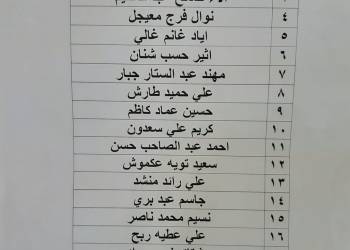 ٤ نوال فرج معيجل
٥ اياد غانم غالي
٦ اثير حسب شنان
٧ مهند عبد الستار جبار
٨ علي حميد طارش
٩ حسين عماد كاظم
١٠ كريم علي سعدون
١١ احمد عبد الصاحب حسن
١٢ سعيد تويه عكموش
١٣ علي رائد منشد
١٤ جاسم عبد بري
١٥ نسيم محمد ناصر
١٦ علي عطيه ربح